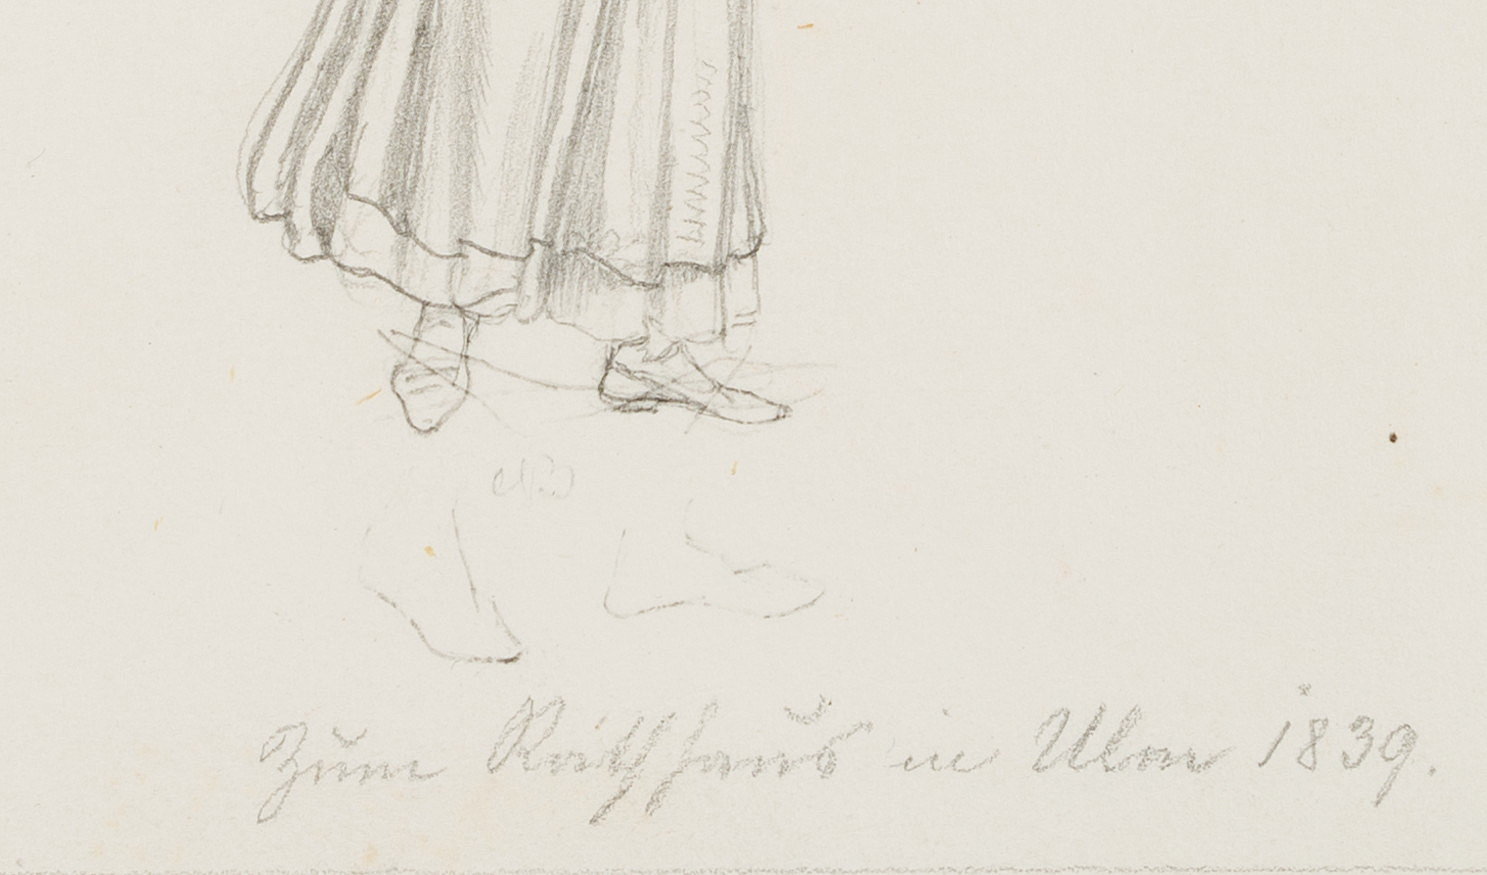 Zum Rathhaus in Ulm 1839.